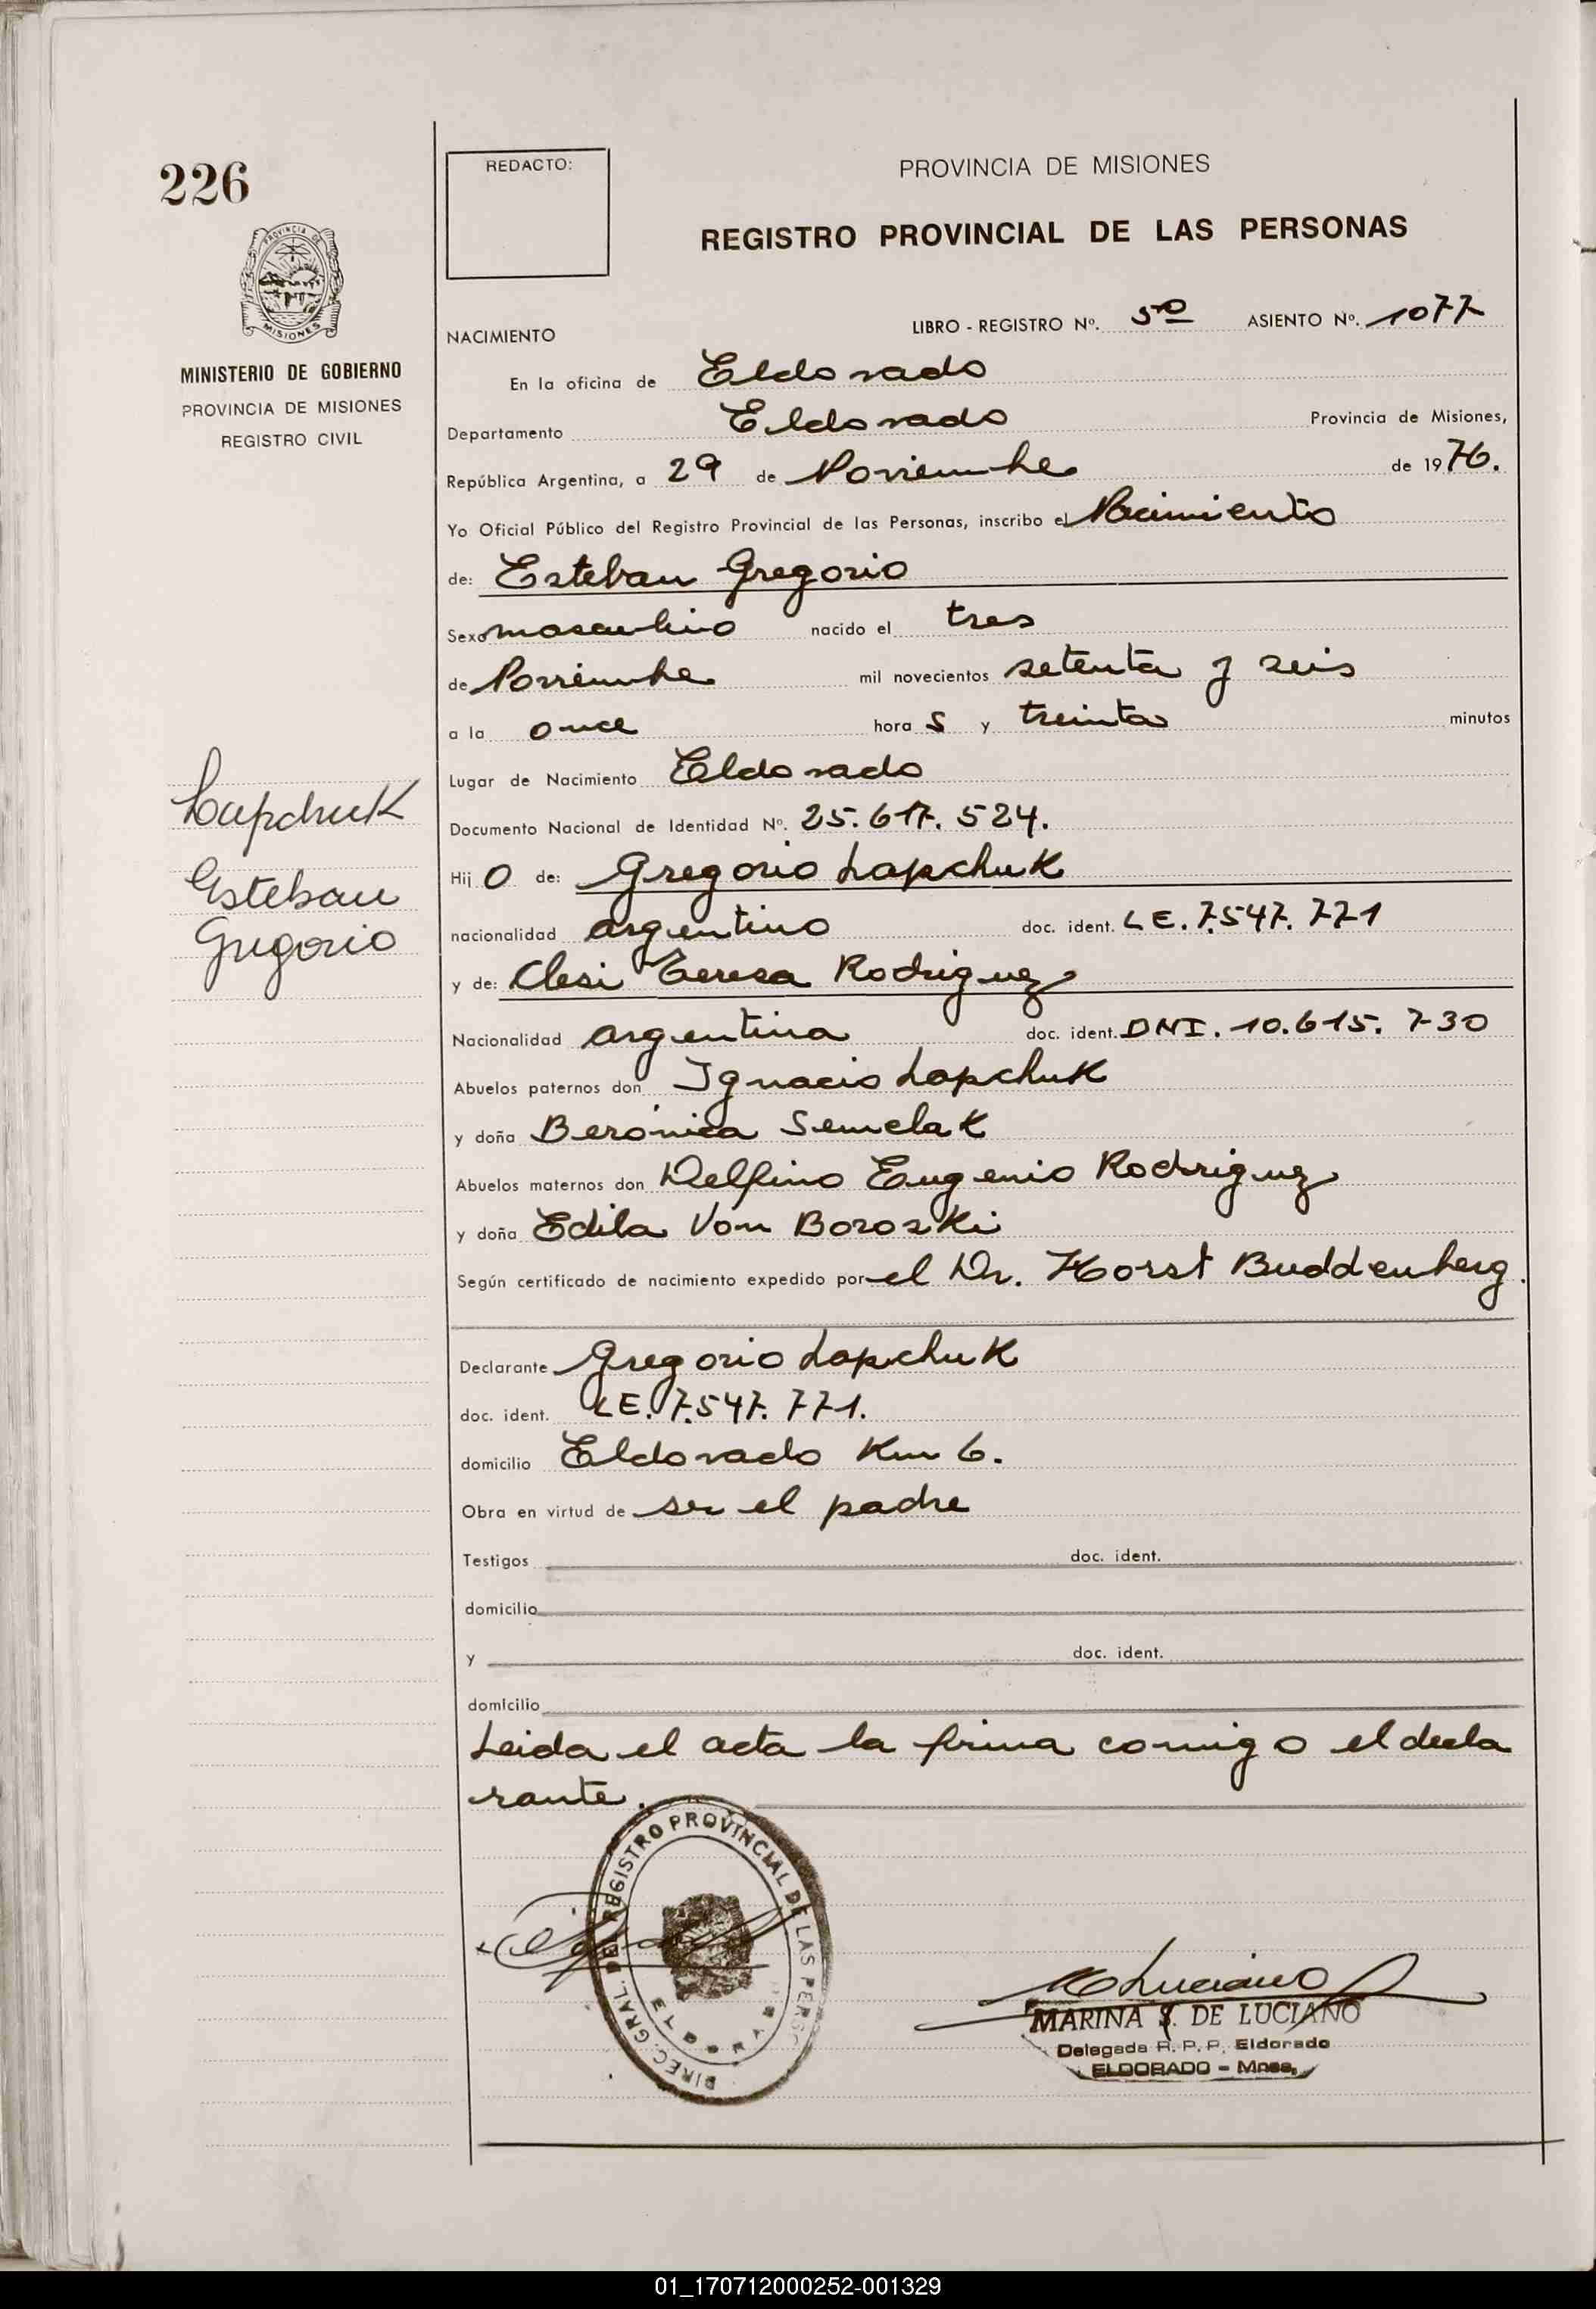 226
REDACTO:
PROVINCIA DE MISIONES
REGISTRO PROVINCIAL DE LAS PERSONAS
PROVINCIA DE
MISIONES
MINISTERIO DE GOBIERNO
PROVINCIA DE MISIONES
REGISTRO CIVIL
LIBRO - REGISTRO Nº. 5º ASIENTO Nº. 1077
NACIMIENTO
En la oficina de Eldorado
Departamento Eldorado Provincia de Misiones,
República Argentina, a 29 de Noviembre de 1976.
Yo Oficial Público del Registro Provincial de las Personas, inscribo el Nacimiento
de: Esteban Gregorio
Sexo masculino nacido el tres
de Noviembre mil novecientos setenta y seis
a la once hora s y treinta minutos
Lugar de Nacimiento Eldorado
Lapchuk
Esteban
Gregorio
Documento Nacional de Identidad Nº. 25.617.524.
Hij o de: Gregorio Lapchuk
nacionalidad argentino doc. ident. LE. 7.547.771
y de: Clesi Teresa Rodriguez
Nacionalidad argentina doc. ident. DNI. 10.615.730
Abuelos paternos don Ignacio Lapchuk
y doña Berónica Semelak
Abuelos maternos don Delfino Eugenio Rodriguez
y doña Edila Von Boroski
Según certificado de nacimiento expedido por el Dr. Horst Buddenberg.
Declarante Gregorio Lapchuk
doc. ident. LE. 7.547.771.
domicilio Eldorado Km 6.
Obra en virtud de ser el padre
Testigos doc. ident.
domicilio
y doc. ident.
domicilio
Leida el acta la firma conmigo el decla
rante.
DIREC. GRAL. DEL REGISTRO PROVINCIAL DE LAS PERSO
ELDORADO
MARINA S. DE LUCIANO
Delegada R. P. P. Eldorado
ELDORADO - Mnes.
01_170712000252-001329